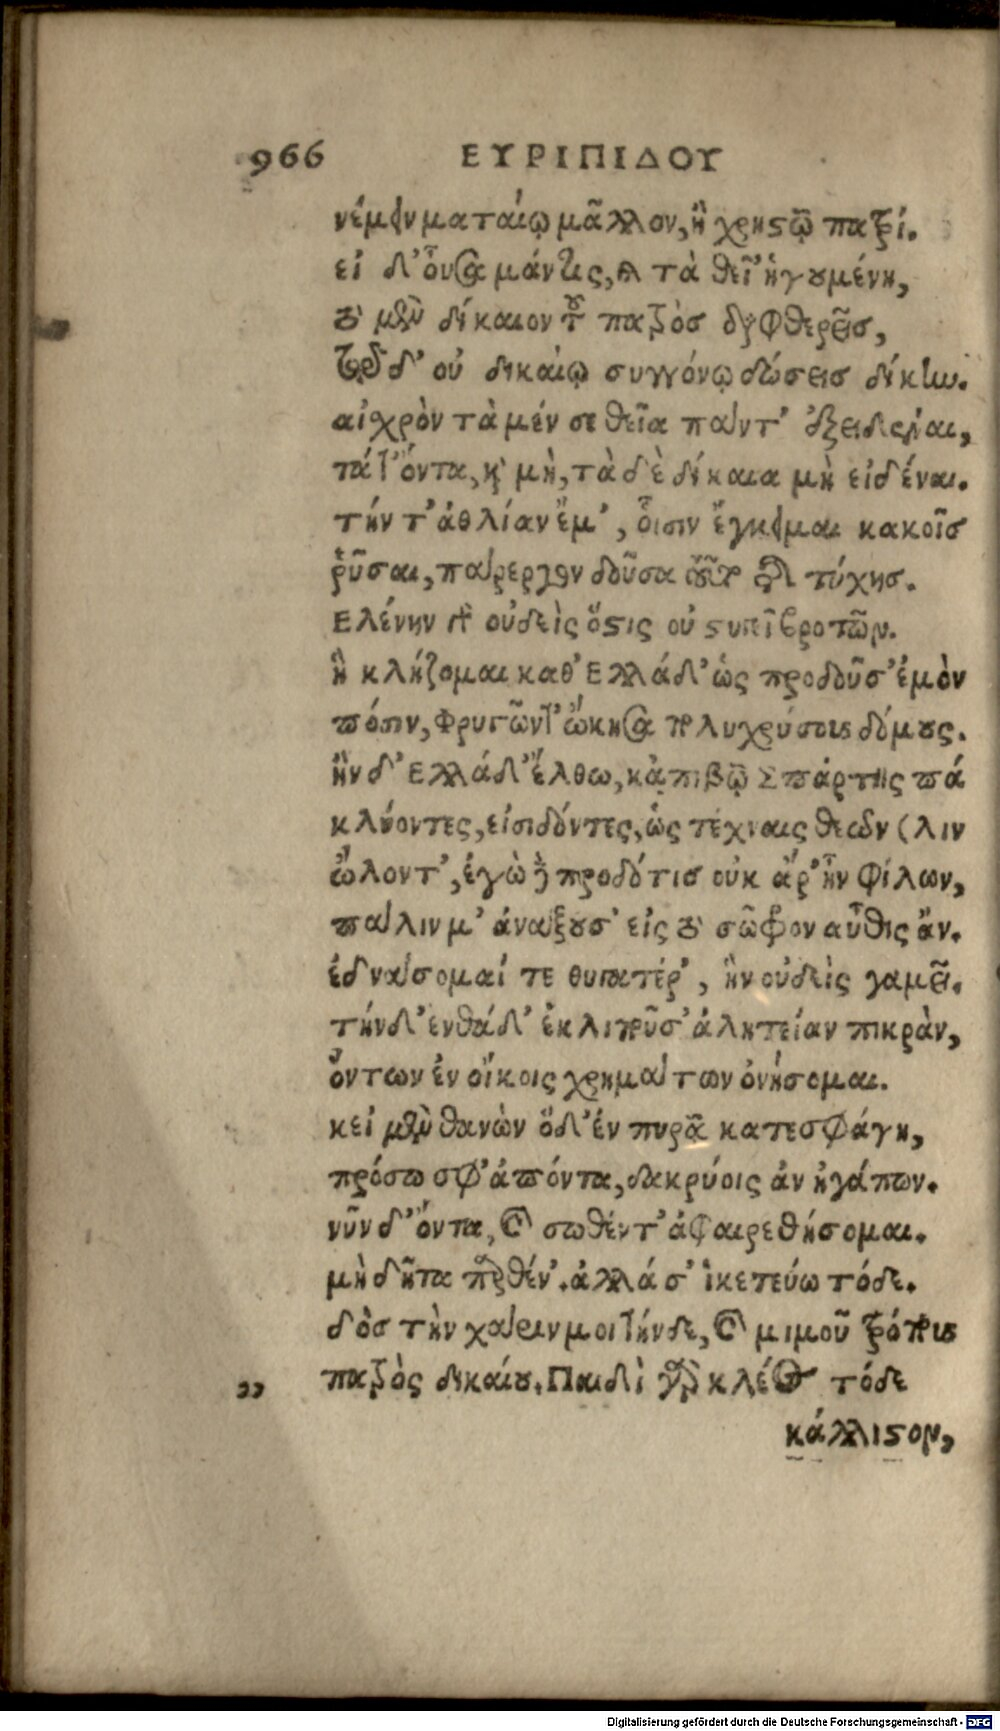 966 ΕΥΡΙΠΙΔΟΥ
νέμειν ματαίῳ μᾶλλον, ἢ χρηστῷ πατρί.
εἰ δ' οὖσα μάντις, καὶ τὰ θεῖ' ἡγουμένη,
τὸ μὲν δίκαιον τοῦ πατρὸς διαφθερεῖς,
τῷ δ' οὐ δικαίῳ συγγόνῳ δώσεις δίκην.
αἰχρὸν τὰ μέν σε θεῖα πάντ' ἐξειδέναι,
τά τ' ὄντα, καὶ μὴ, τὰ δὲ δίκαια μὴ εἰδέναι.
τήν τ' ἀθλίαν ἔμ', οἷσιν ἔγκειμαι κακοῖς
ῥῦσαι, πάρεργον δοῦσα τοῦτο τῆς τύχης.
Ελένην γὰρ οὐδεὶς ὅστις οὐ στυγεῖ βροτῶν.
ἣ κλήζομαι καθ' Ελλάδ' ὡς προδοῦσ' ἐμὸν
πόσιν, Φρυγῶν τ' ᾤκησα πολυχρύσους δόμους.
ἢν δ' Ελλάδ' ἔλθω, κἀπιβῶ Σπάρτης πά
κλύοντες, εἰσιδόντες, ὡς τέχναις θεῶν (λιν
ὤλοντ', ἐγὼ δὲ προδότις οὐκ ἄρ' ἦν φίλων,
πάλιν μ' ἀνάξουσ' εἰς τὸ σῶφρον αὖθις ἄν.
ἑδνάσομαί τε θυγατέρ', ἣν οὐδεὶς γαμεῖ.
τήνδ' ἐνθάδ' ἐκλιποῦσ' ἀλητείαν πικρὰν,
ὄντων ἐν οἴκοις χρημάτων ὀνήσομαι.
κεἰ μὲν θανὼν ὅδ' ἐν πυρᾷ κατεσφάγη,
πρόσω σφ' ἀπόντα, δακρύοις ἀν ἠγάπων.
νῦν δ' ὄντα, καὶ σωθέντ' ἀφαιρεθήσομαι.
μὴ δῆτα παρθέν'. ἀλλά σ' ἱκετεύω τόδε.
δὸς τὴν χάριν μοι τήνδε, καὶ μιμοῦ τρόπους
,, πατρὸς δικαίου. Παιδὶ γὰρ κλέος τόδε
κάλλιστον,
Digitalisierung gefördert durch die Deutsche Forschungsgemeinschaft - DFG